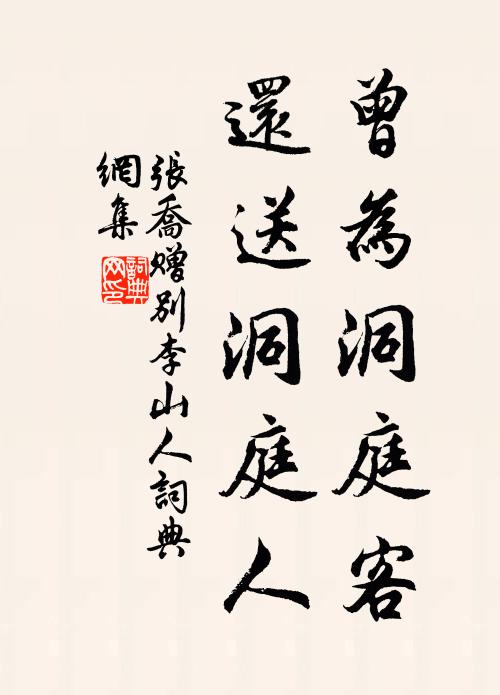 曾為洞庭客
還送洞庭人
張喬贈別李山人詞典
網集
詞典
网印